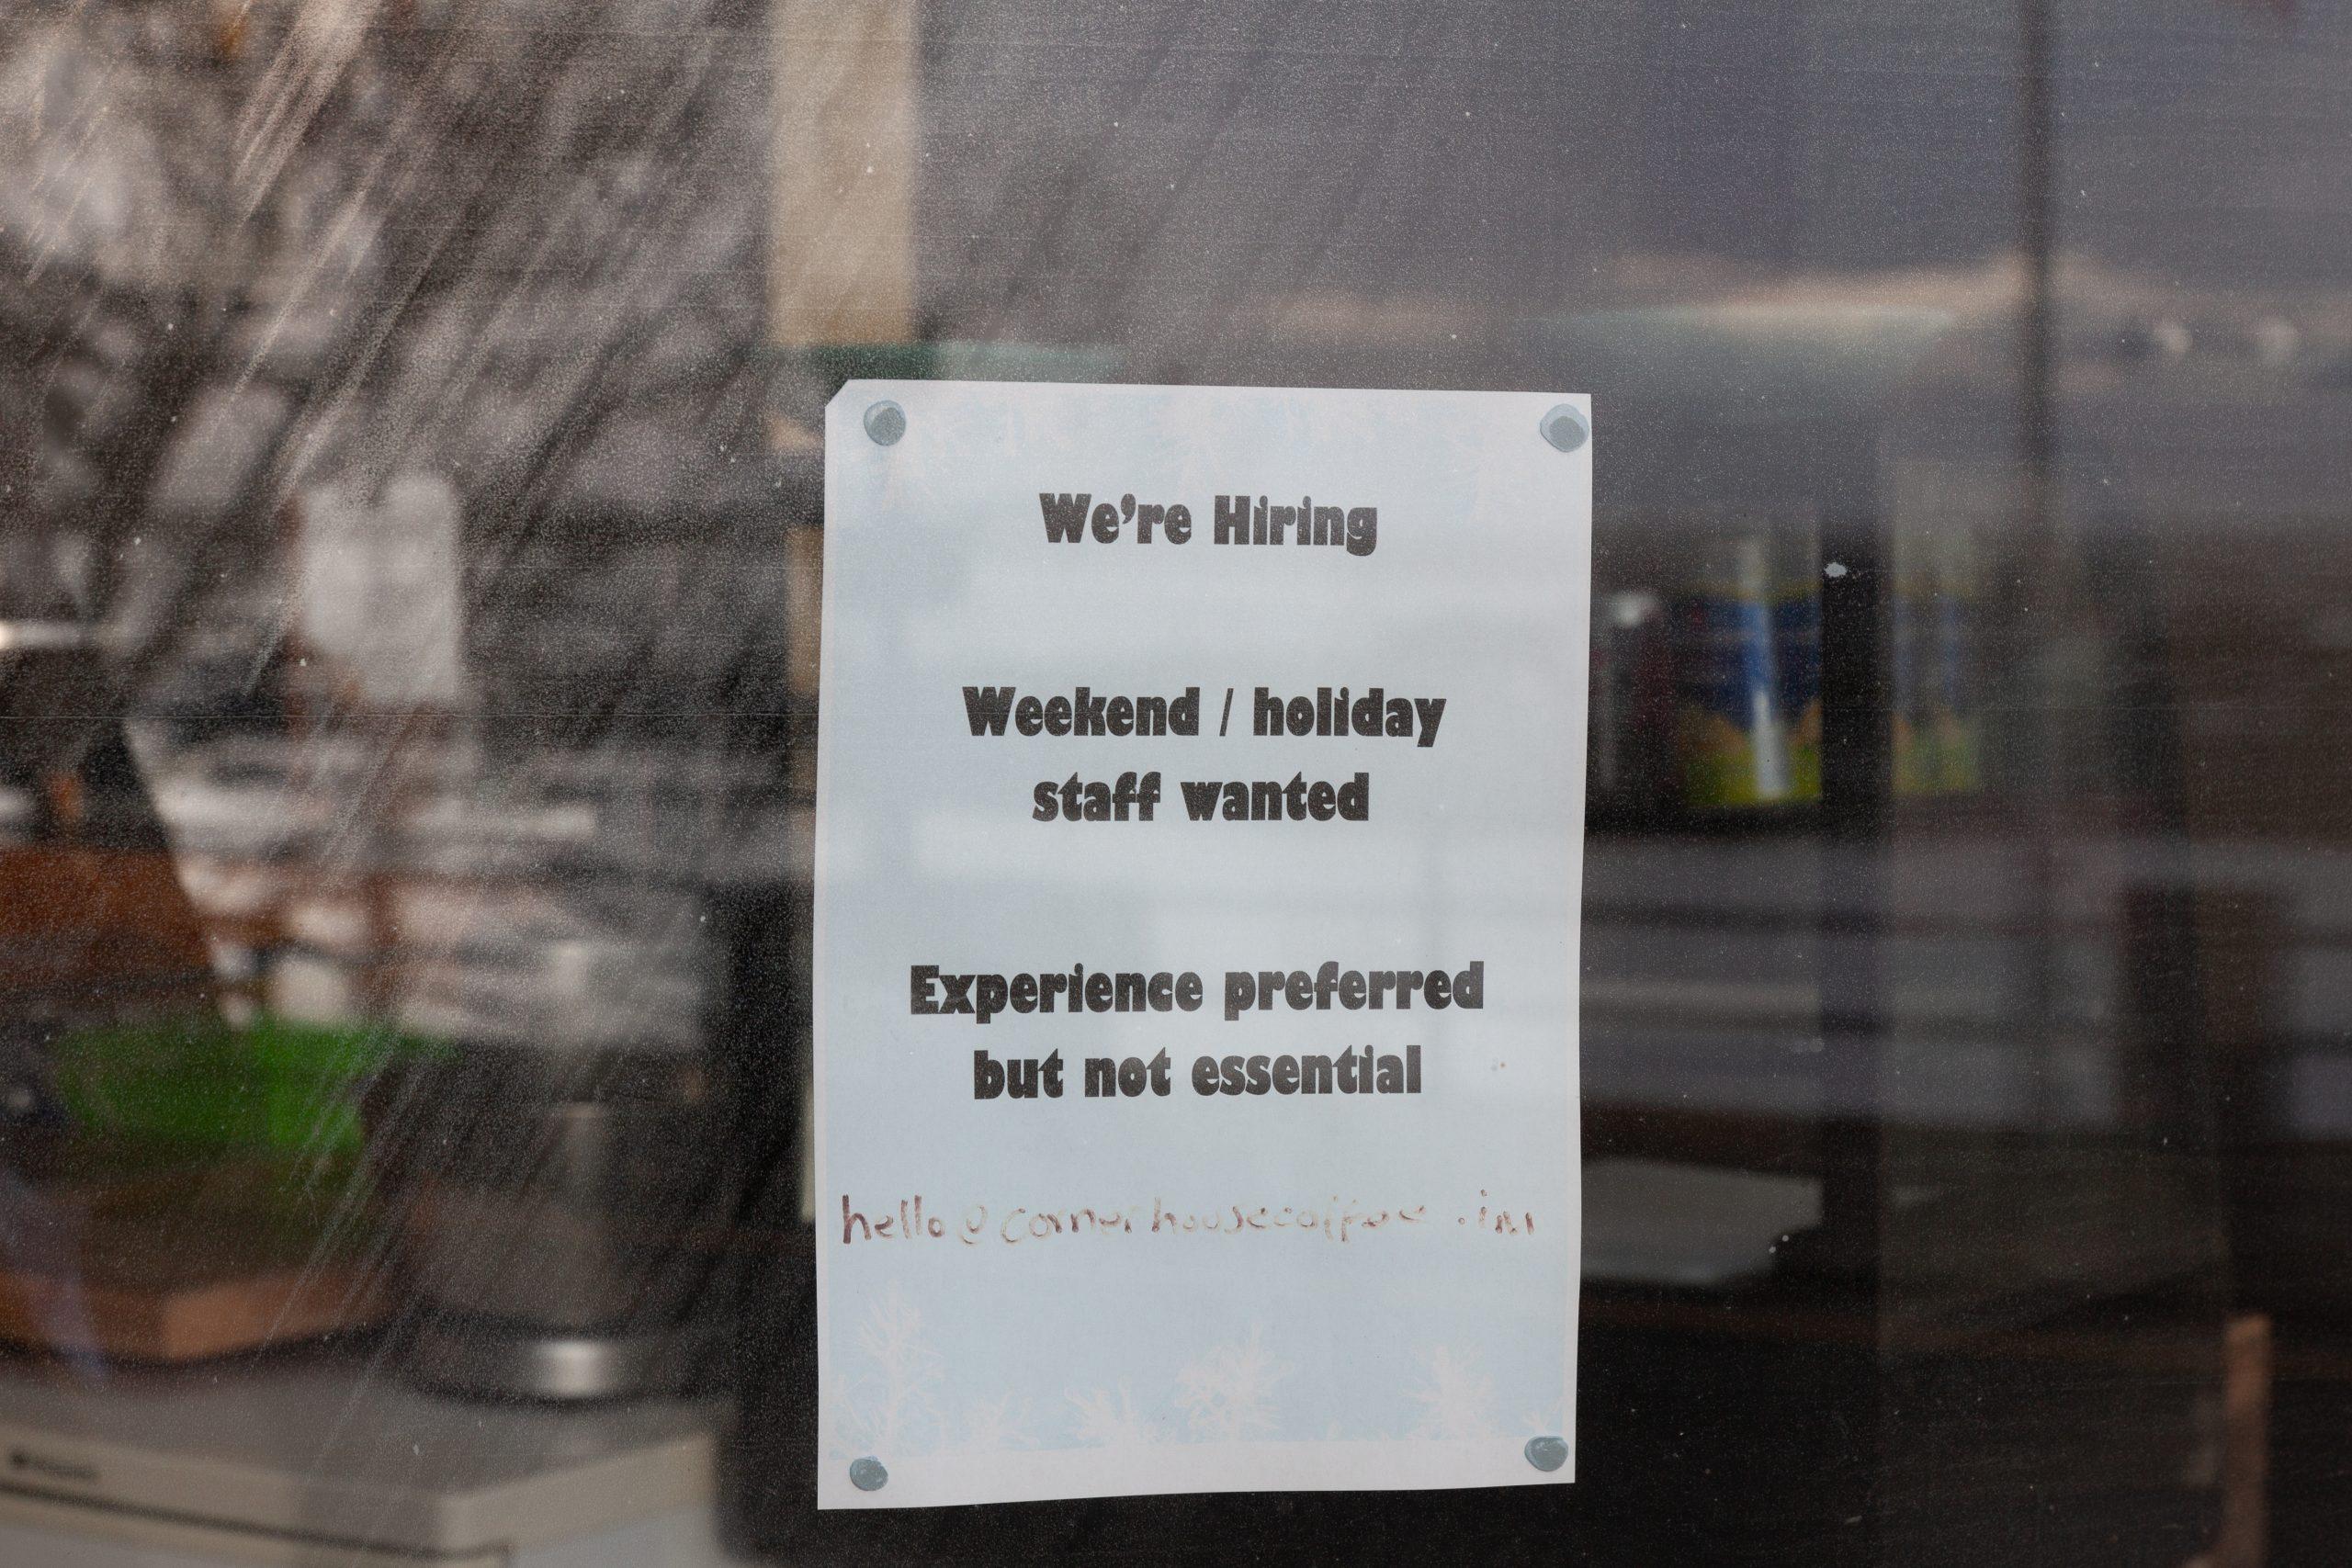 We're Hiring
Weekend / holiday
staff wanted
Experience preferred
but not essential
hello@cornerhousecoffee.im